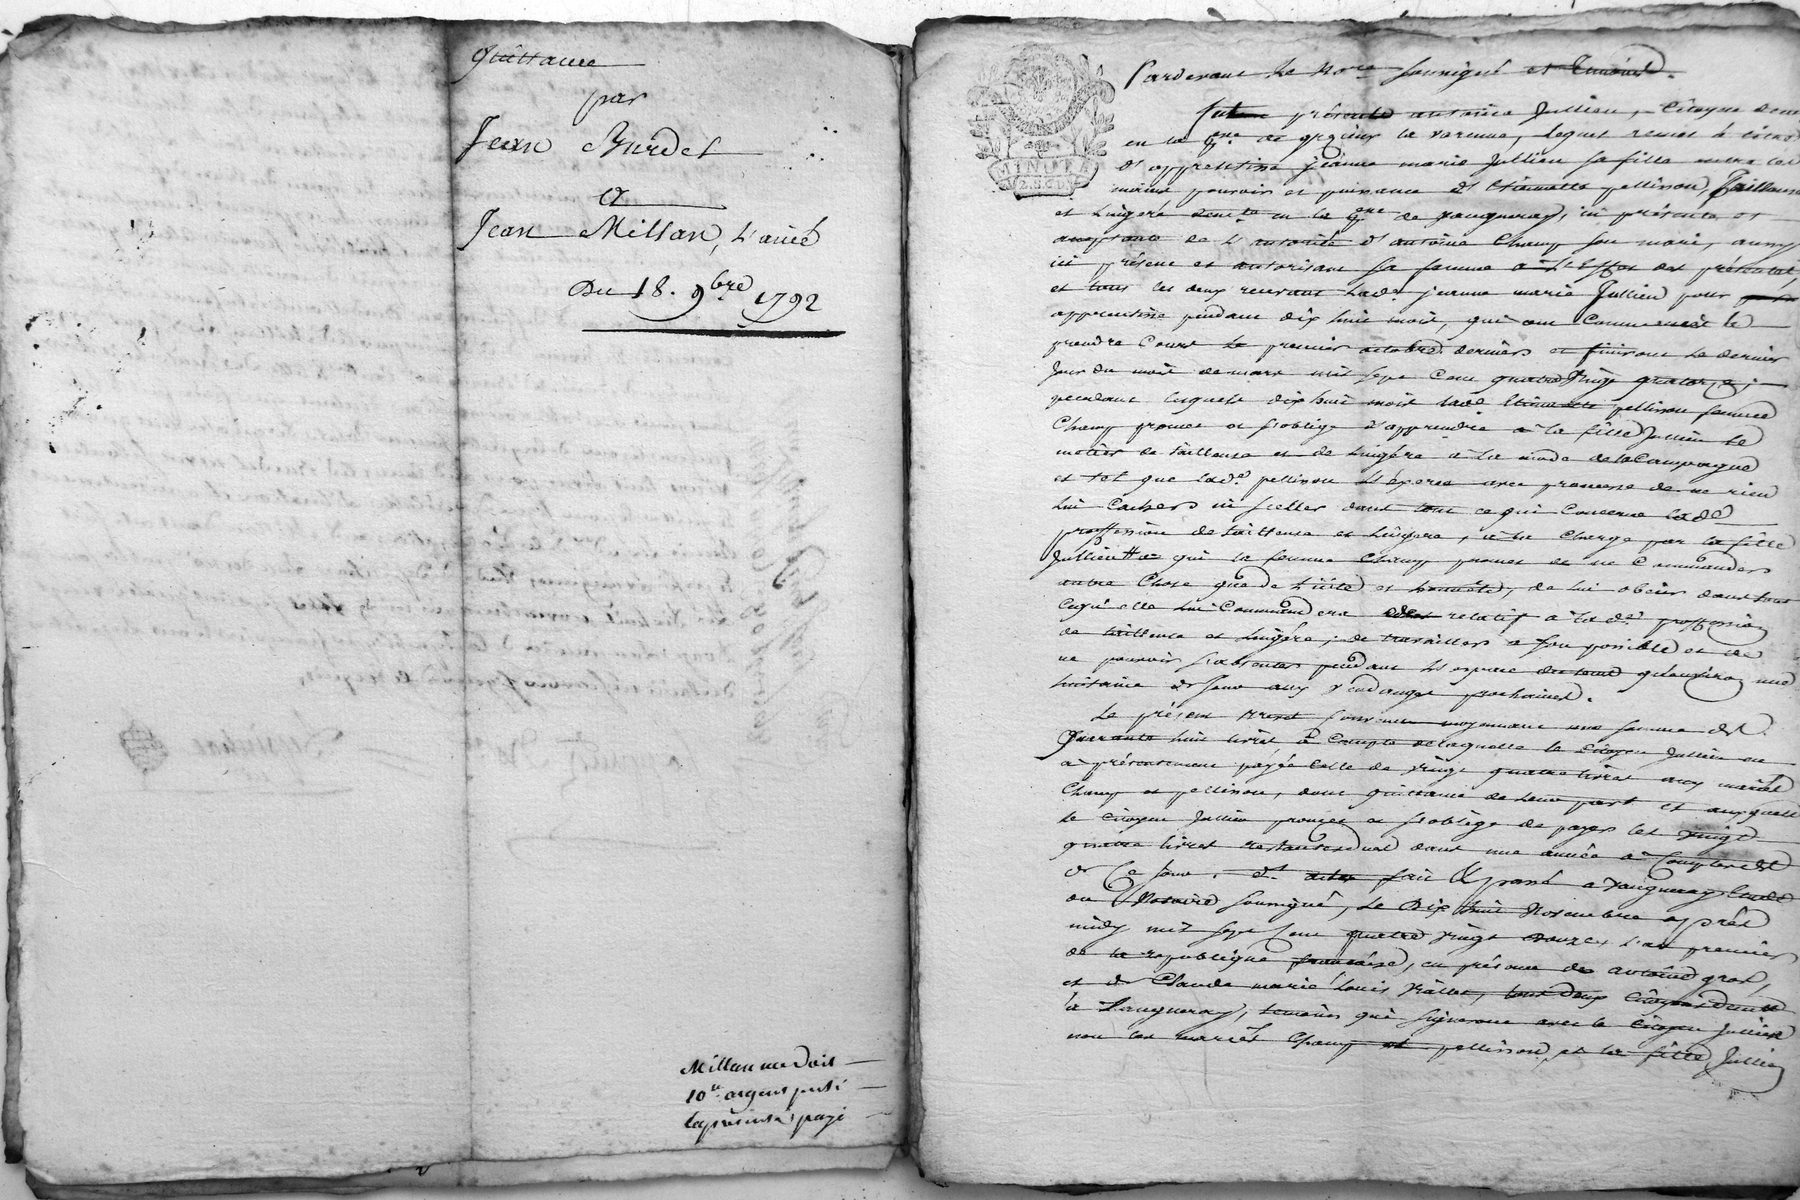 quittance
par
Jean Burdel
a
Jean Millan, L'ainé
Du 18. 9bre 1792
Millan me doit
10tt argent preté
la présente payé
MINUTE
2. SOLS
Pardevant Le Nore soussigné et témoins.
fut présente antoine Jullien, Citoyen dem
en la de grézieux la varenne, lequel remet à titre
d'apprentisse jeanne marie Jullien sa fille entre les
mains pouvoir et puissance d'Etiennette pellisson, Tailleuse
et Lingère en la de vaugneray, ici présente et
acceptante de L'autorité d'antoine Champ son mari, aussy
ici présent et autorisant sa femme à L'Effet des présentes,
et tous les deux recevant Lade. jeanne marie Jullien pour
apprentisse pendant dix huit mois, qui ont Commencé à
prendre Cours Le premier octobre dernier et finiront Le dernier
Jour du mois de mars mil sept Cent quatre Vingt quatorze;
pendant lesquels dix huit mois lade. Etiennette pellisson femme
Champ promet et s'oblige d'apprendre à la fille Jullien Le
métier de tailleuse et de Lingère à La mode de la Campagne
et tel que lade. pellisson L'éxerce avec promesse de ne rien
lui Cacher ni dans tout ce qui Concerne lade.
proffession de tailleuse et Lingère, à la Charge par la fille
Jullien à qui la femme Champ promet de ne Commander
autre Chose que de Licite et honnête, de lui obéir dans tout
cequ'elle lui Commandera relatif à lade. proffession
de tailleuse et Lingère; de travailler à son possible et de
ne pouvoir s'absenter pendant L'espace qu'environ une
huitaine de jours aux Vendanges prochaines.
Le présent moyennant une somme de
Quarante huit livres à Compte de laquelle le Citoyen Jullien en
a présentement payée Celle de Vingt quatre livres aux mariés
Champ et pellisson, dont quittance de leur part et auxquels
le Citoyen Jullien promet et s'oblige de payer les vingt
quatre livres restantes dans une année à Compter de
Ce jour. dt. acte fait & passé à Vaugneray Etude
du Notaire soussigné, Le Dix huit Novembre après
midy mil sept Cent quatre vingt douze L'an premier
de la république française, en présence de antoine gros,
et de Claude marie Louis Viallet, tous deux Citoyens
à Vaugneray, témoins qui signeront avec le Citoyen Jullien
non les mariés Champ et pellisson, et la fille Jullien